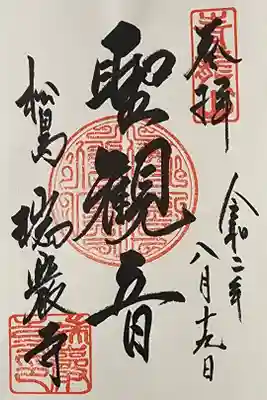 奉拝
令和二年
八月十九日
聖観音
松島
瑞巌寺